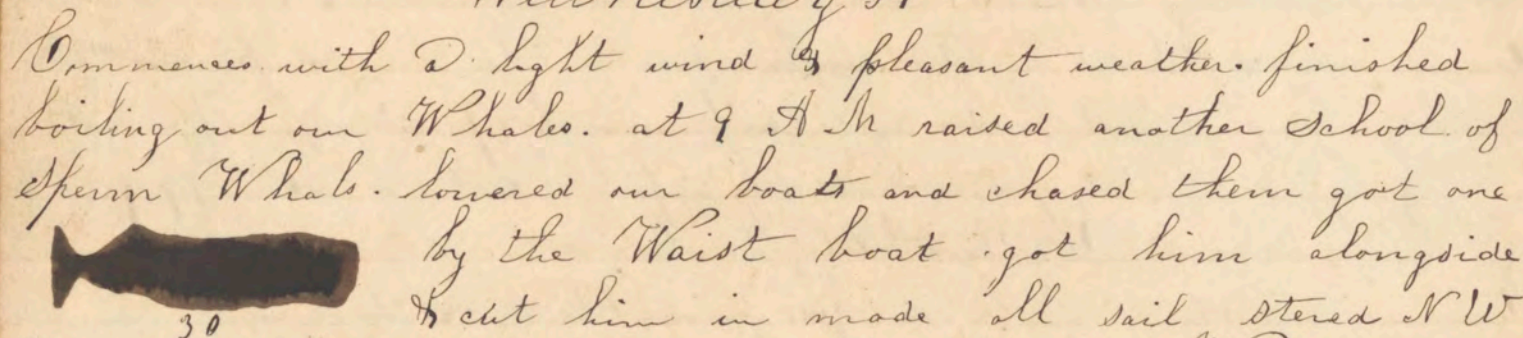 Commences with a light wind & pleasant weather. finished
boiling out our Whales. at 9 A M raised another School of
Sperm Whals. lowered our boats and chased them got one
by the Waist boat. got him alongside
& cut him in made all sail stered N W
30